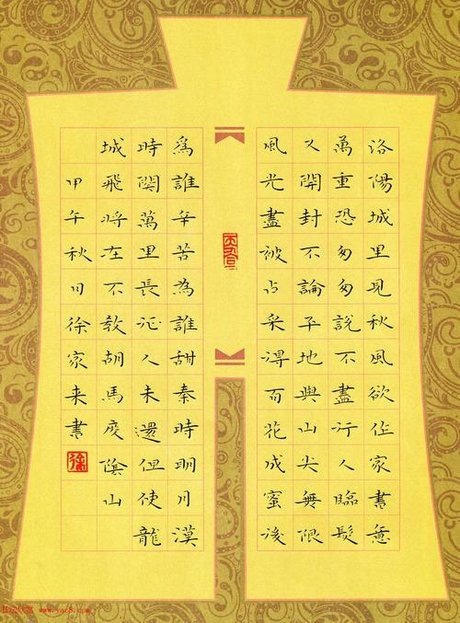 洛陽城里見秋風欲作家書意
萬重恐匆匆說不盡行人臨髮
又開封不論平地與山尖無限
風光盡被占采得百花成蜜後
為誰辛苦為誰甜秦時明月漢
時關萬里長征人未還但使龍
城飛將在不教胡馬度陰山
甲午秋月徐家来書
徐
www.yac8.com